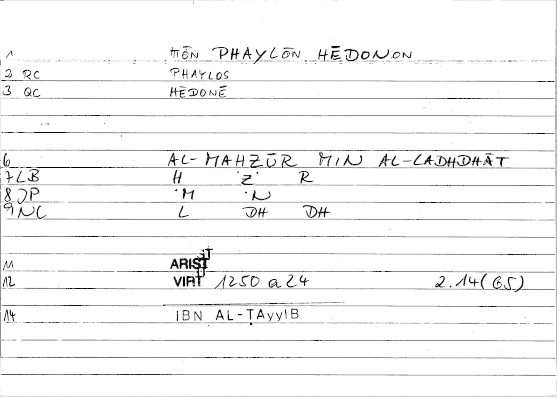 1 TŌN PHAYLŌN HĒDONON
2 QC PHAYLOS
3 QC HĒDONĒ
6 AL-MAHZŪR MIN AL-LADHDHĀT
7LB H Z R
8JP M N
9NC L DH DH
11 ARIST
12 VIRT 1250 a 24 2.14 (GS)
14 IBN AL-ṬAyyIB